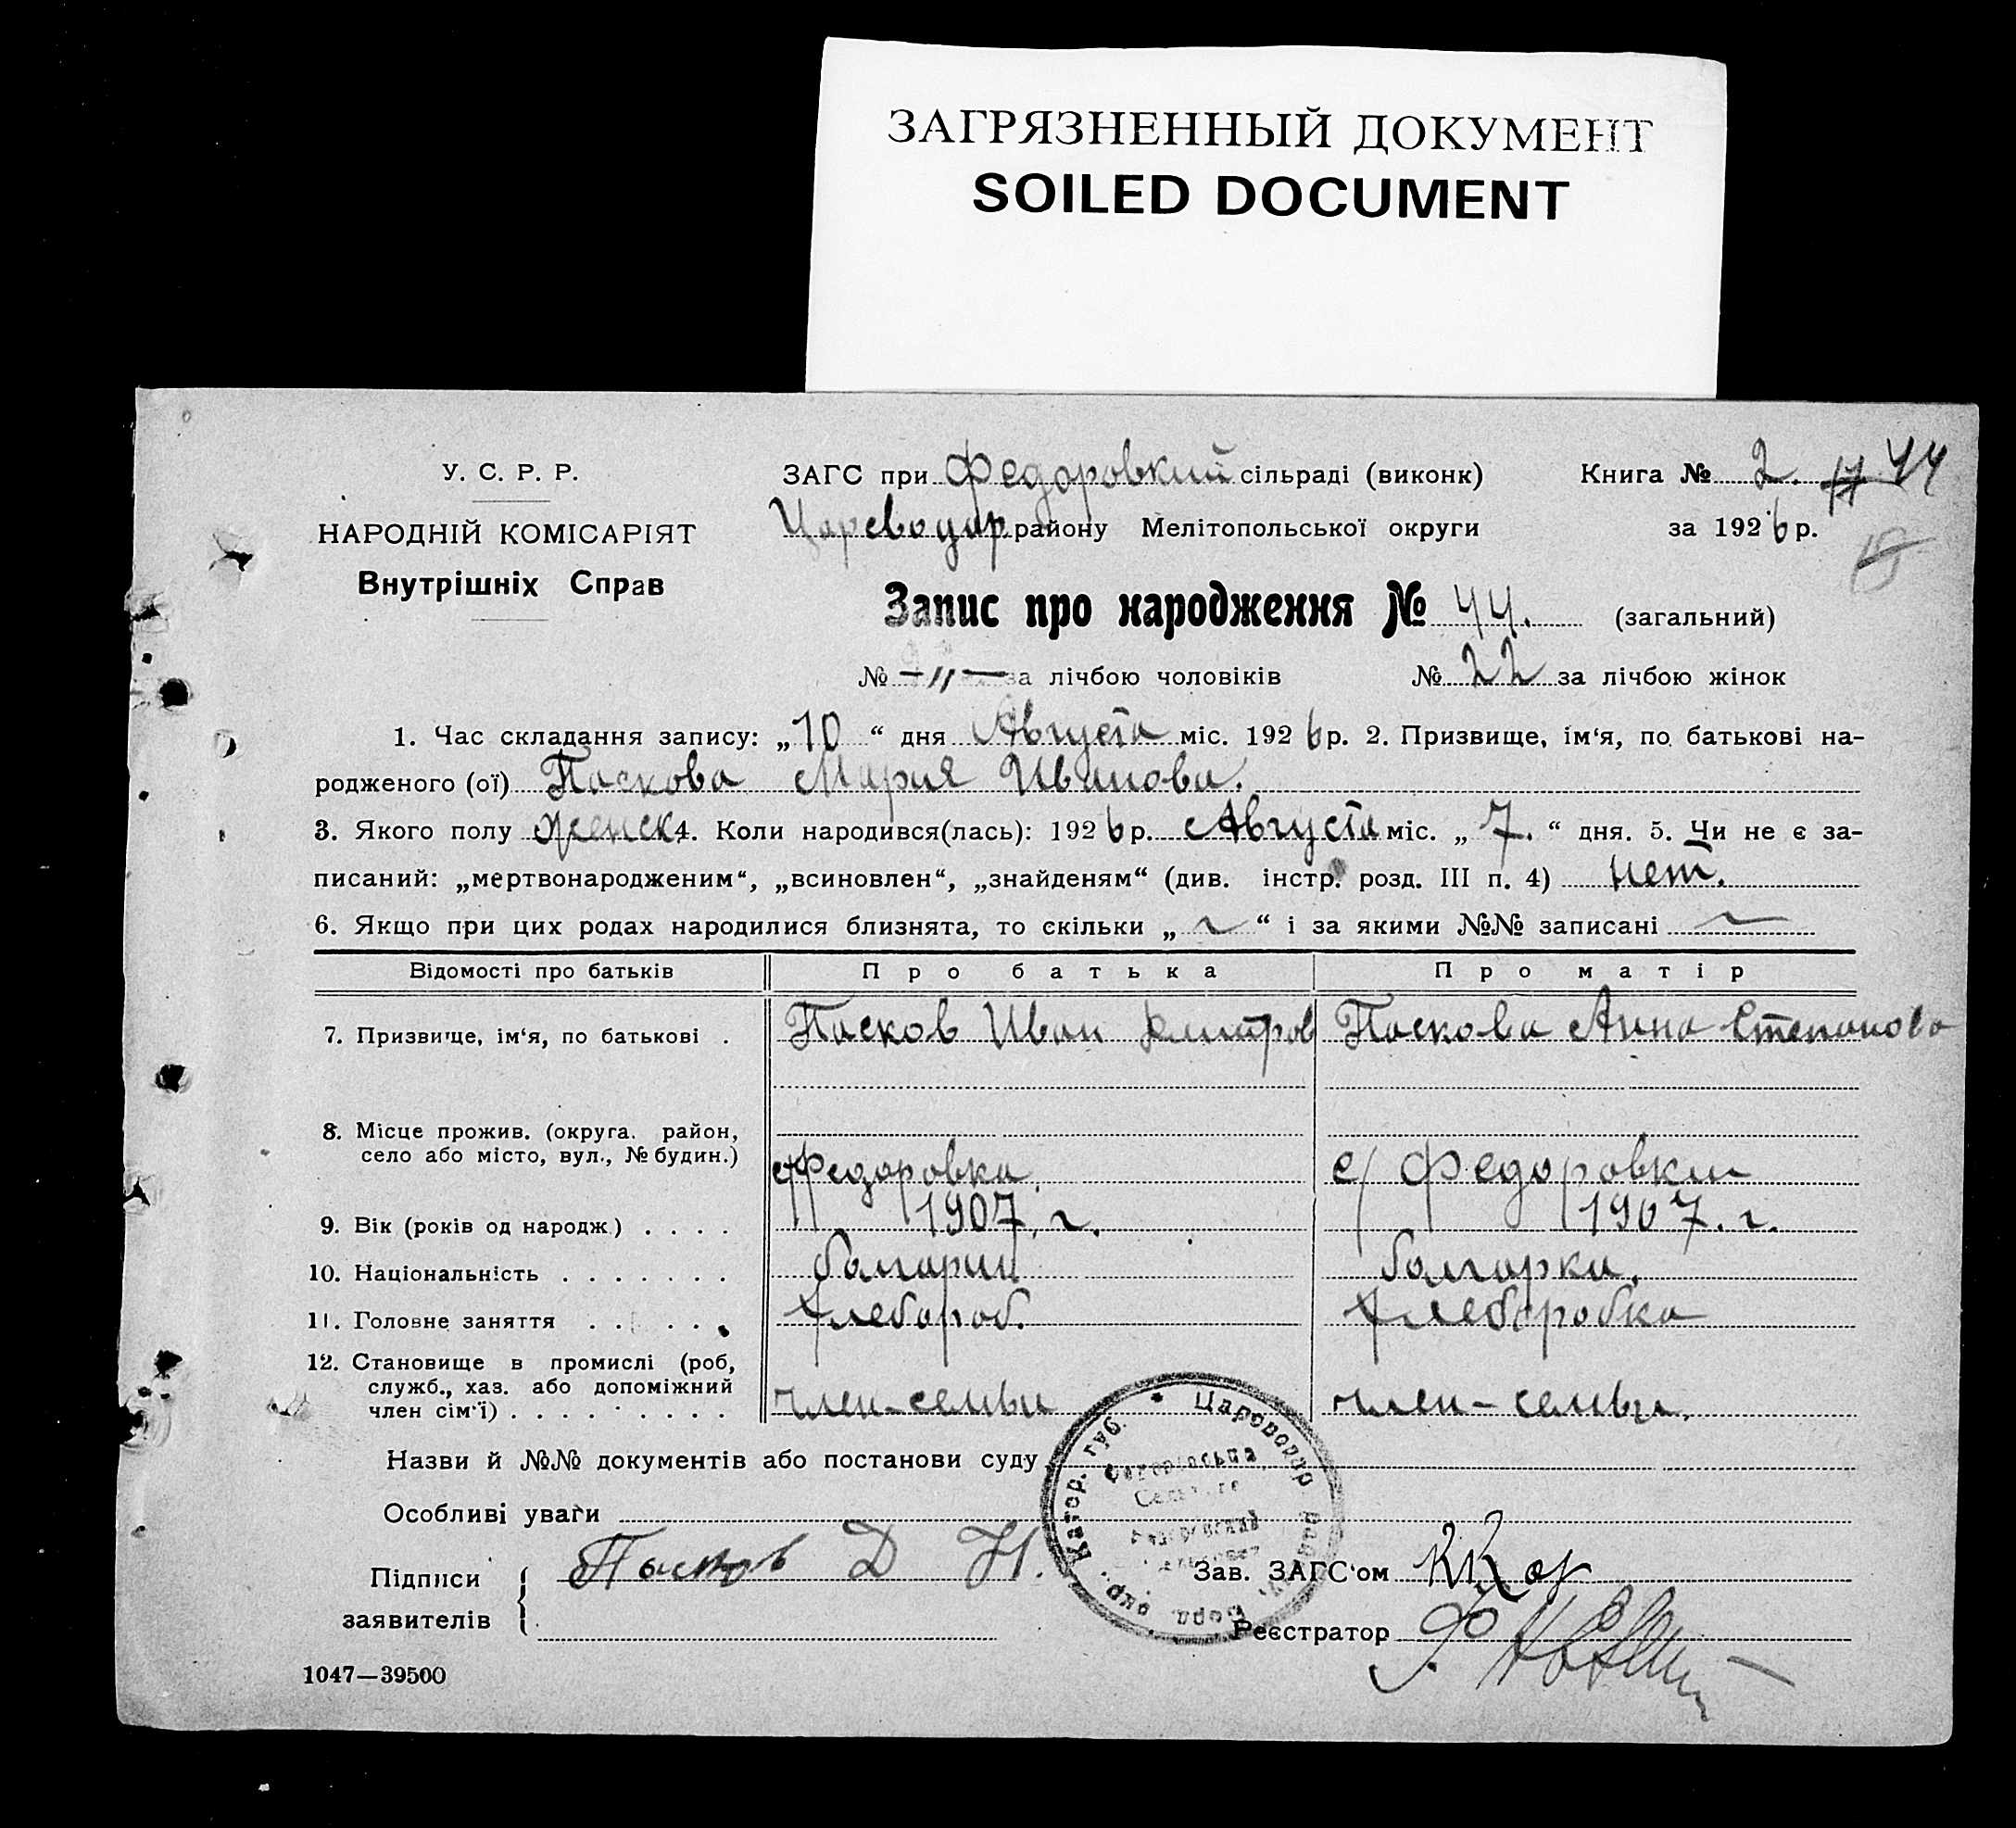 ЗАГРЯЗНЕННЫЙ ДОКУМЕНТ
SOILED DOCUMENT
У. С. Р. Р.
НАРОДНІЙ КОМІСАРІЯТ
Внутрішніх Справ
ЗАГС при Федоровкий сільраді (виконк)
Цареводар району Мелітопольської округи
Книга № 2. 17 44
за 1926 р.
Запис про народження № 44. (загальний)
№ —〃— за лічбою чоловіків № 22 за лічбою жінок
1. Час складання запису: „10“ дня Августа міс. 1926 р. 2. Призвище, ім‘я, по батькові на-
родженого (ої) Паскова Мария Иванова.
3. Якого полу женск 4. Коли народився(лась): 1926 р. Августа міс. „7.“ дня. 5. Чи не є за-
писаний: „мертвонародженим“, „всиновлен“, „знайденям“ (див. інстр. розд. III п. 4) нет.
6. Якщо при цих родах народилися близнята, то скільки „~“ і за якими №№ записані ~
Відомості про батьків Про батька Про матір
7. Призвище, ім‘я, по батькові . Пасков Иван Дмитров Паскова Анна Степанова
8. Місце прожив. (округа. район,
село або місто, вул., № будин.) с/Федоровка. с/ Федоровки
9. Вік (років од народж) . . . . 1907. г. 1907. г.
10. Національність . . . . . . . болгарин болгарка.
11. Головне заняття . . . . . хлебороб. хлеборобка
12. Становище в промислі (роб,
служб., хаз. або допоміжний
член сім‘ї) . . . . . . . . . член-семьи член-семьи.
Назви й №№ документів або постанови суду
Особливі уваги
Підписи
заявителів
Пасков Д И.
Зав. ЗАГС‘ом
Реєстратор
Цареводар
Катер. губ.
окр.
1047—39500